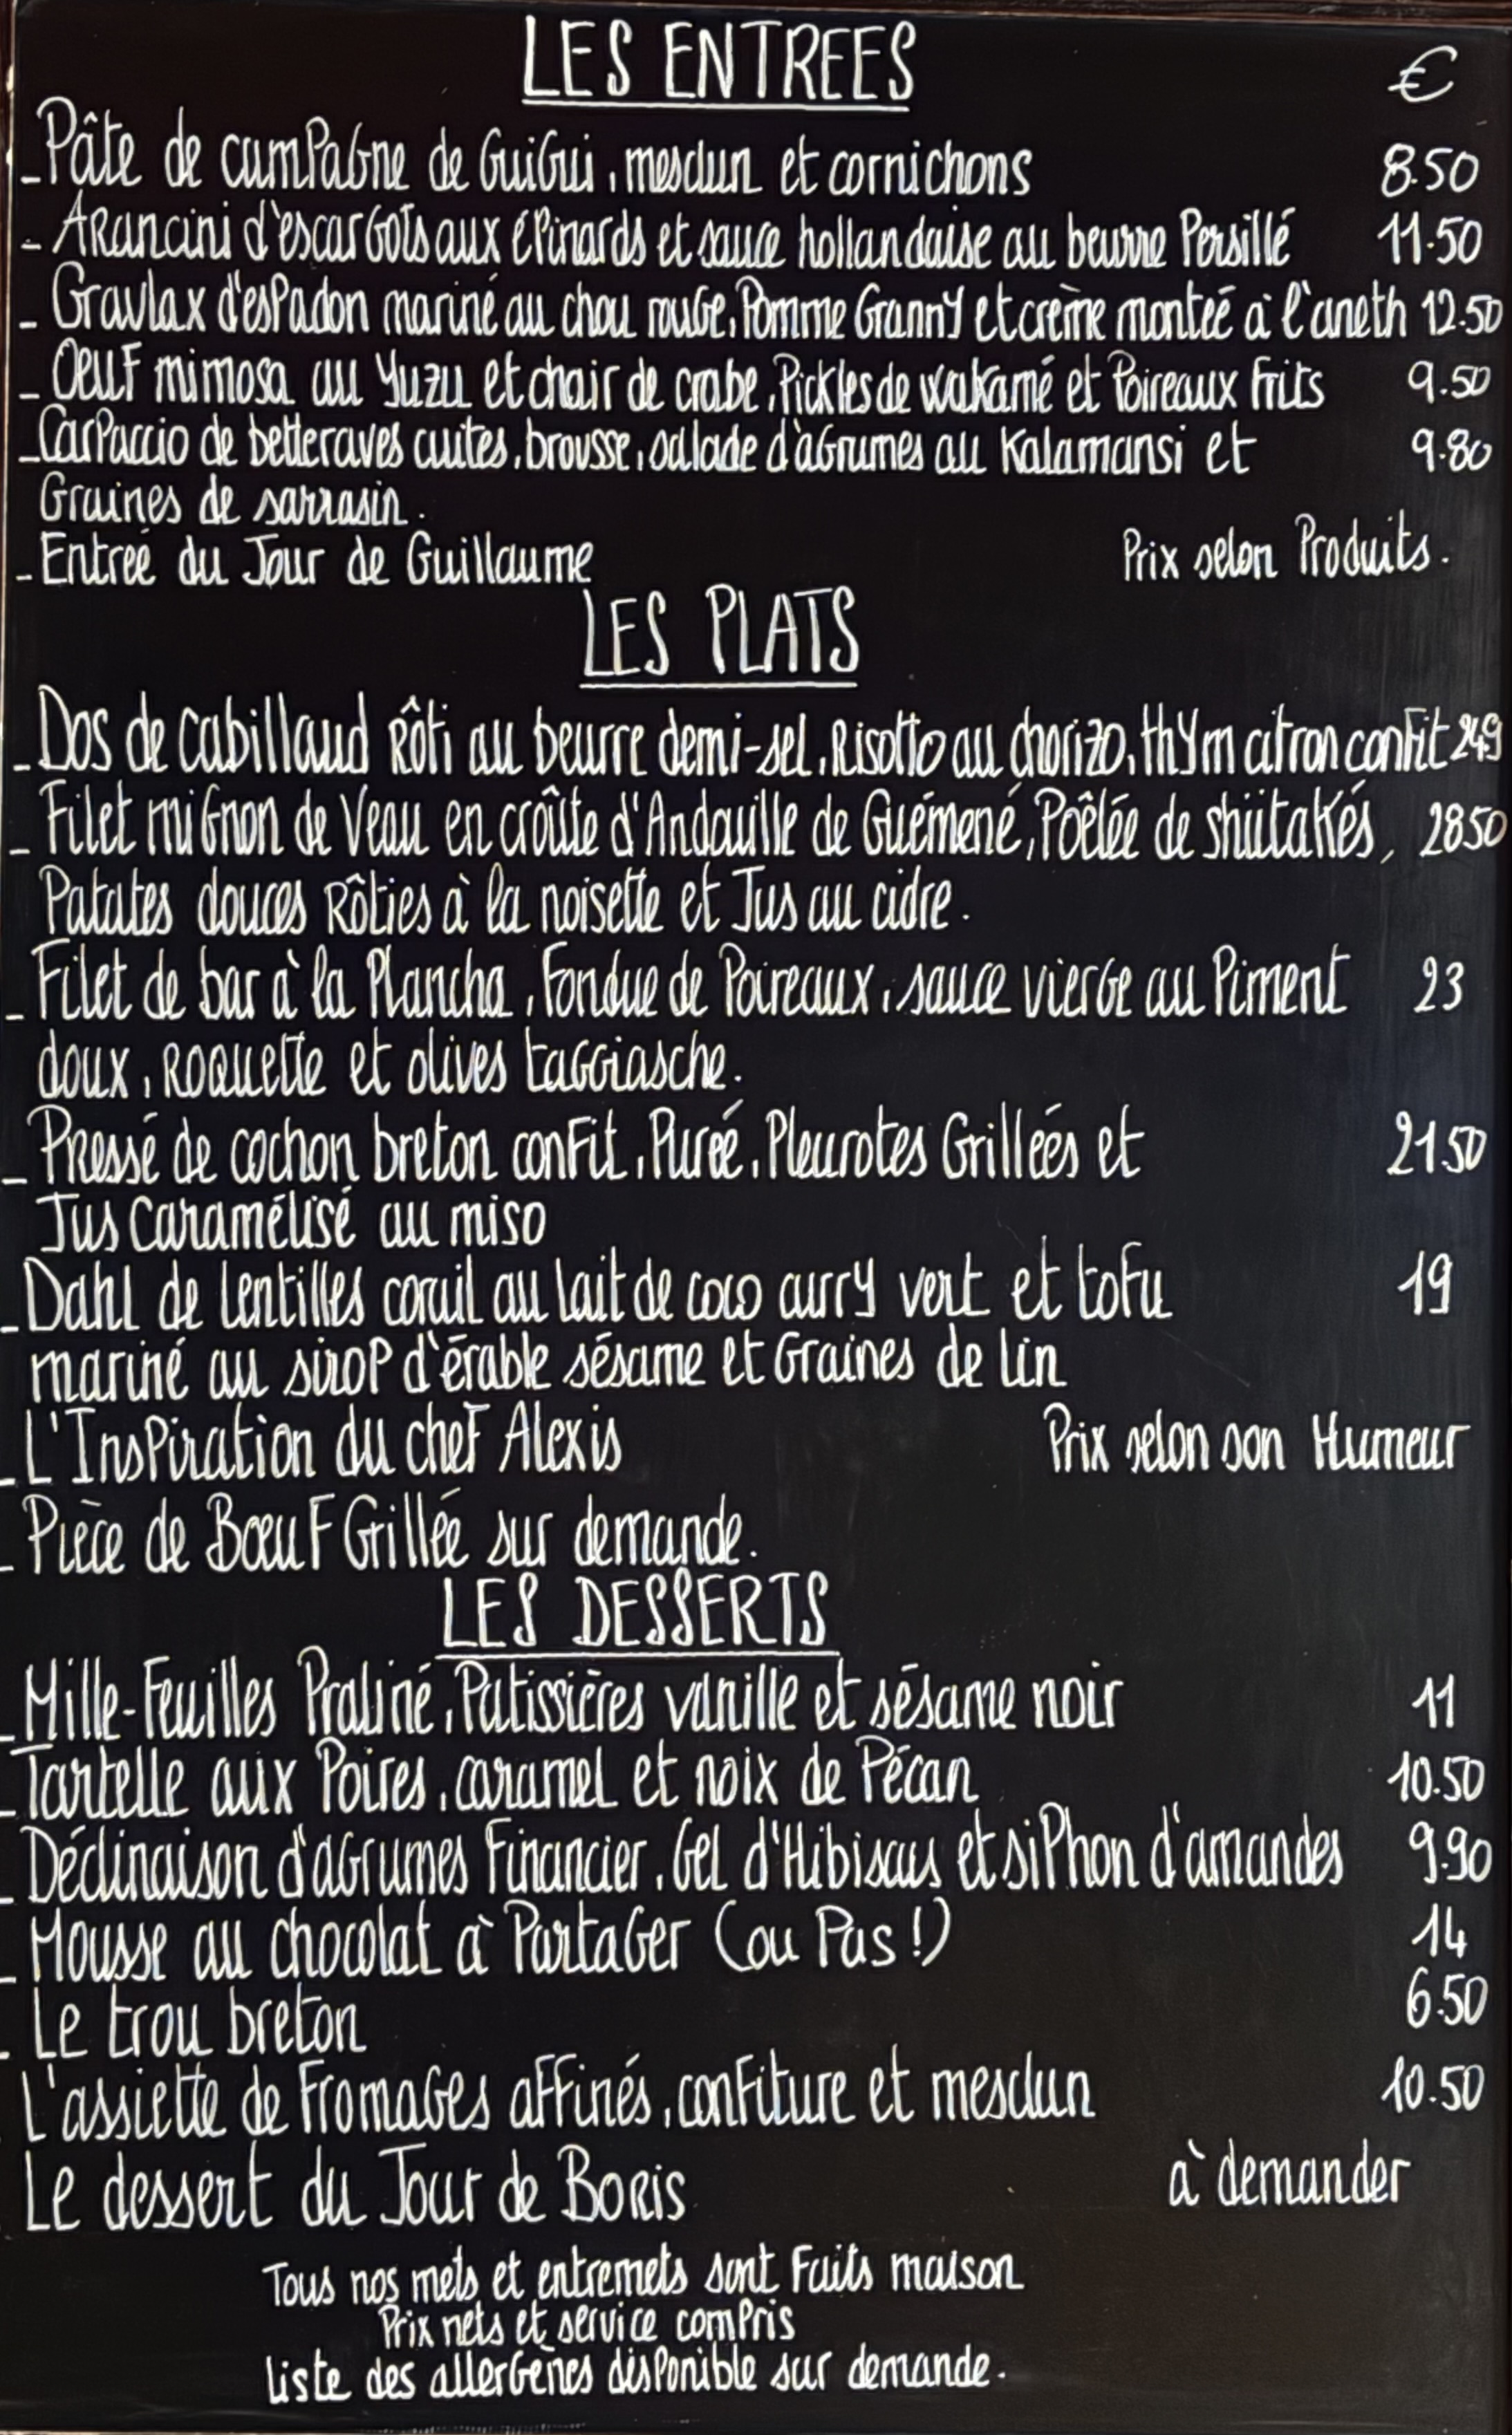 LES ENTREES €
- Pâte de campagne de Guigui, mesclun et cornichons 8.50
- Arancini d'escargots aux épinards et sauce hollandaise au beurre persillé 11.50
- Gravlax d'espadon mariné au chou rouge, pomme Granny et crème monteé à l'aneth 12.50
- Oeuf mimosa au yuzu et chair de crabe, pickles de wakamé et poireaux frits 9.50
- Carpaccio de betteraves cuites, brousse, salade d'agrumes au kalamansi et 9.80
Graines de sarrasin.
- Entreé du Jour de Guillaume Prix selon Produits.
LES PLATS
- Dos de cabillaud rôti au beurre demi-sel, risotto au chorizo, thym citron confit
- Filet mignon de veau en croûte d'Andouille de Guémené, Poêlée de shiitakés, 2850
Patates douces rôties à la noisette et Jus au cidre.
- Filet de bar à la plancha, fondue de poireaux, sauce vierge au piment 23
doux, roquette et olives taggiasche.
- Pressé de cochon breton confit, Pureé, Pleurotes Grilleés et 21.50
Jus caramélisé au miso
- Dahl de lentilles corail au lait de coco curry vert et tofu 19
mariné au sirop d'érable sésame et Graines de lin
- L'Inspiration du chef Alexis Prix selon son Humeur
- Pièce de Bœuf Grillée sur demande.
LES DESSERTS
- Mille-Feuilles Praliné, Patissières vanille et sésame noir 11
- Tartelle aux Poires, caramel et noix de Pécan 10.50
- Déclinaison d'agrumes Financier, Gel d'Hibiscus et siphon d'amandes 9.90
- Mousse au chocolat à Partager (ou Pas !) 14
- Le trou breton 6.50
L'assiette de Fromages affinés, confiture et mesclun 10.50
Le dessert du Jour de Boris à demander
Tous nos mets et entremets sont Faits maison
Prix nets et service compris
Liste des allergènes disponible sur demande.